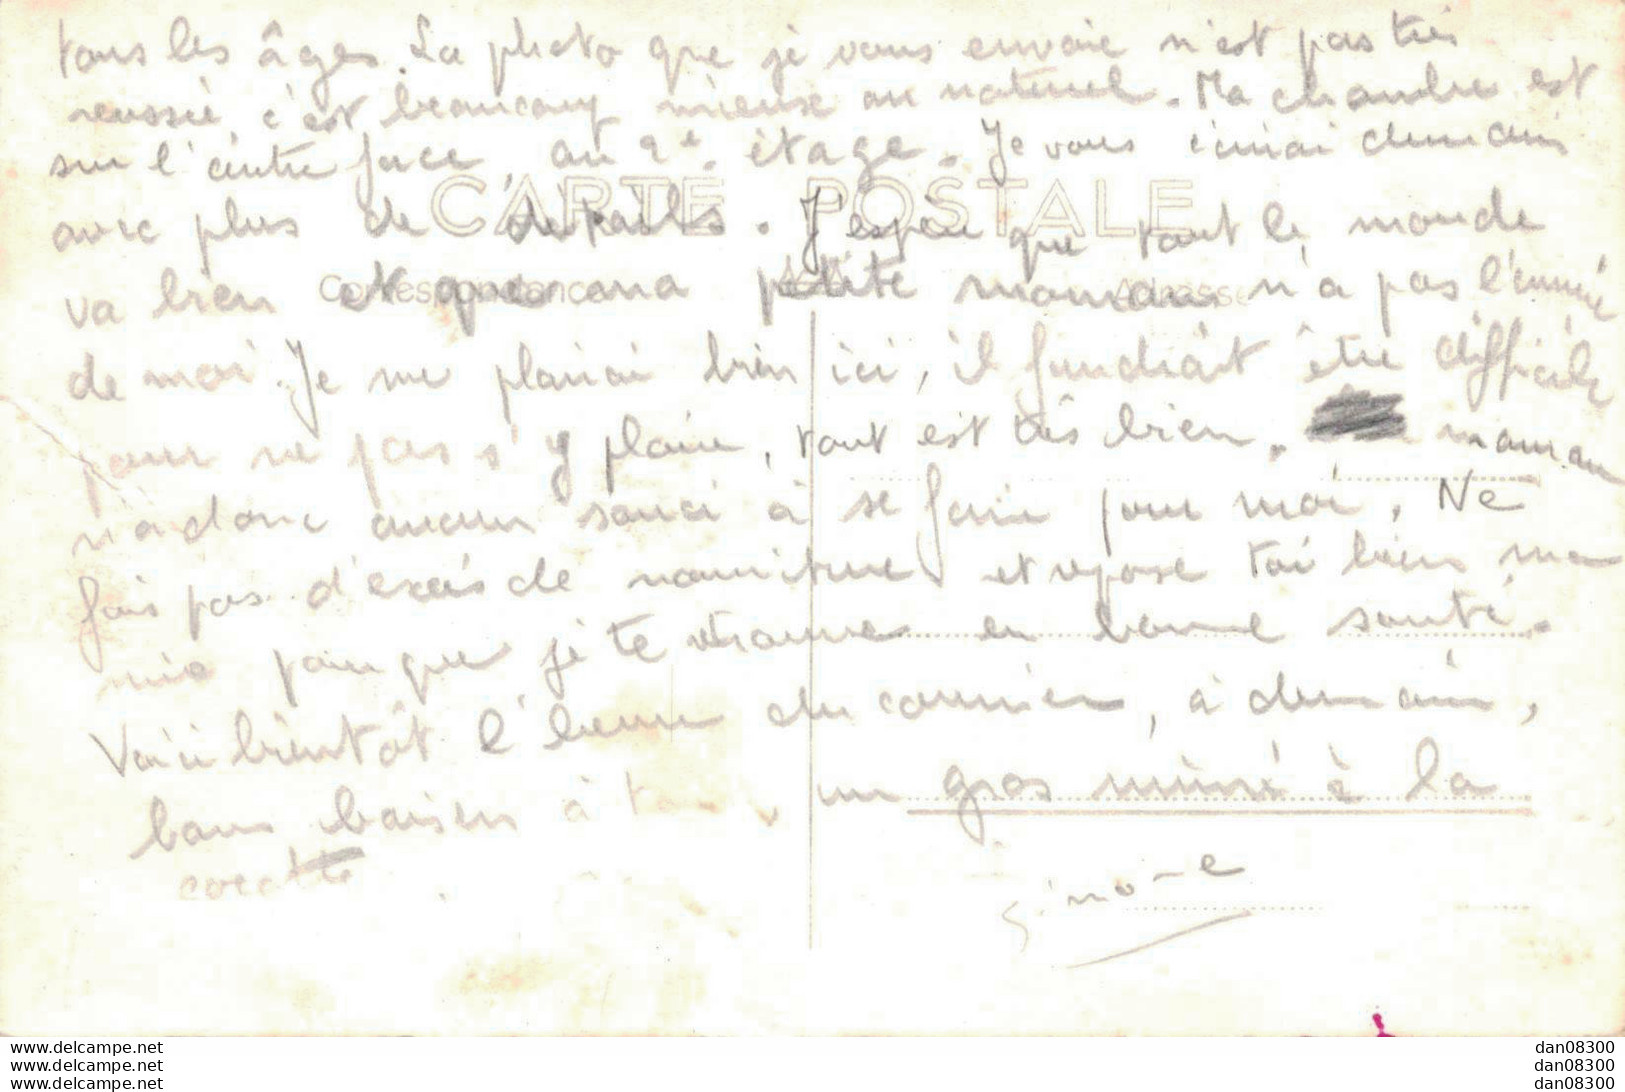 tous les âges. La photo que je vous envoie n'est pas très
réussie, c'est beaucoup mieux au naturel. Ma chambre est
sur l'autre face, au 2e étage. Je vous écrirai demain
CARTE POSTALE
avec plus de détails. J'espère que tout le monde
Correspondance Adresse
va bien et que ma petite maman n'a pas l'ennui
de moi. Je me plairai bien ici, il faudrait être difficile
pour ne pas s'y plaire, tout est très bien. maman
n'a donc aucun souci à se faire pour moi. Ne
fais pas d'excès de nourriture et repose toi bien ma
mie pour que je te retrouve en bonne santé.
Voici bientôt l'heure du courrier, à demain,
bons baisers à tous, un gros mimi à la
cocotte
Simone
www.delcampe.net
www.delcampe.net
www.delcampe.net
dan08300
dan08300
dan08300